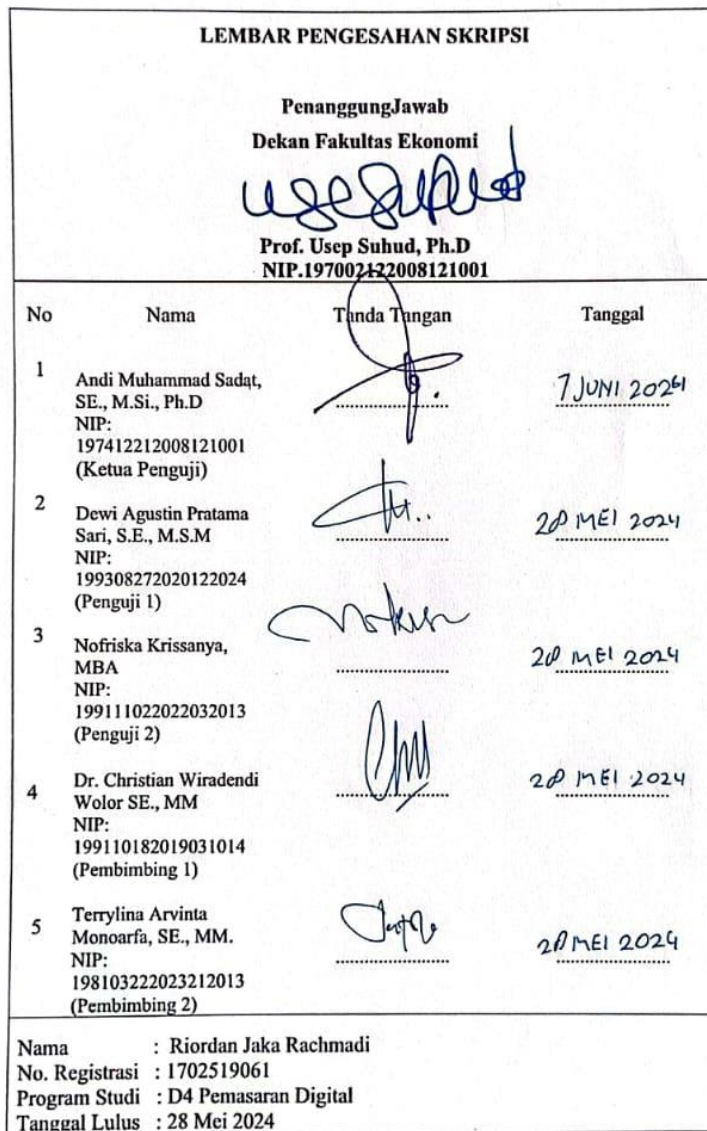 LEMBAR PENGESAHAN SKRIPSI
PenanggungJawab
Dekan Fakultas Ekonomi
Prof. Usep Suhud, Ph.D
NIP.197002122008121001
No Nama Tanda Tangan Tanggal
1 Andi Muhammad Sadat, SE., M.Si., Ph.D
NIP:
197412212008121001
(Ketua Penguji)
7 JUNI 2024
2 Dewi Agustin Pratama
Sari, S.E., M.S.M
NIP:
199308272020122024
(Penguji 1)
28 MEI 2024
3 Nofriska Krissanya,
MBA
NIP:
199111022022032013
(Penguji 2)
28 MEI 2024
4 Dr. Christian Wiradendi
Wolor SE., MM
NIP:
199110182019031014
(Pembimbing 1)
28 MEI 2024
5 Terrylina Arvinta
Monoarfa, SE., MM.
NIP:
198103222023212013
(Pembimbing 2)
28 MEI 2024
Nama : Riordan Jaka Rachmadi
No. Registrasi : 1702519061
Program Studi : D4 Pemasaran Digital
Tanggal Lulus : 28 Mei 2024